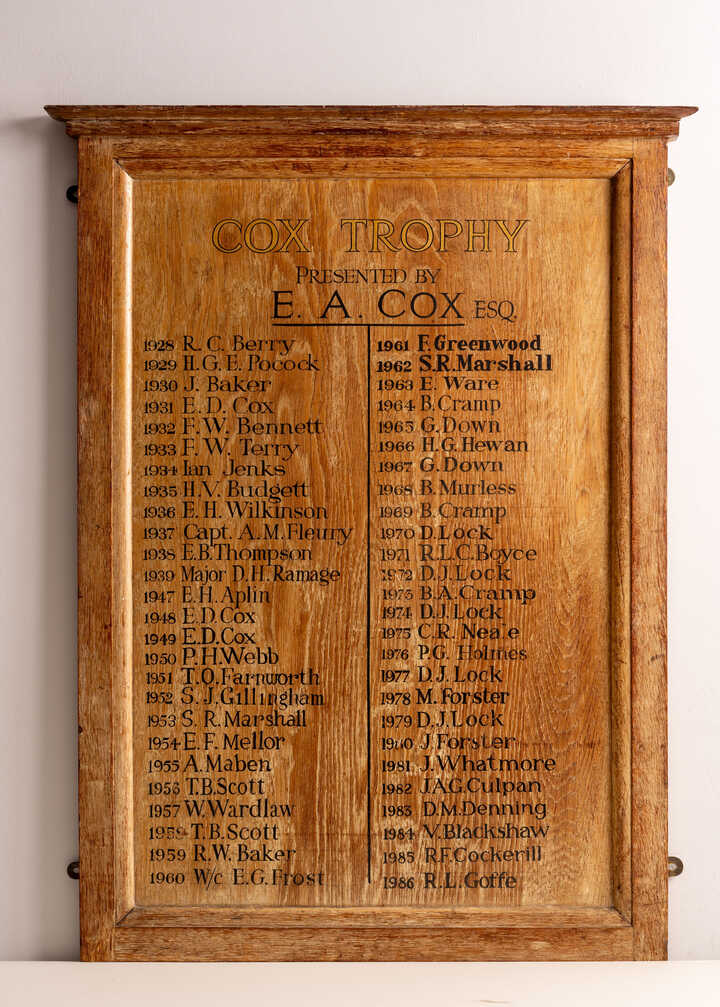 COX TROPHY
PRESENTED BY
E. A. COX ESQ.
1928 R. C. Berry
1929 H. G. E. Pocock
1930 J. Baker
1931 E. D. Cox
1932 F. W. Bennett
1933 F. W. Terry
1934 Ian Jenks
1935 H.V. Budgett
1936 E. H. Wilkinson
1937 Capt. A.M.Fleury
1938 E.B.Thompson
1939 Major D.H.Ramage
1947 E.H.Aplin
1948 E.D.Cox
1949 E.D.Cox
1950 P.H.Webb
1951 T.O.Farnworth
1952 S. J.Gillingham
1953 S. R.Marshall
1954 E.F. Mellor
1955 A.Maben
1956 T.B.Scott
1957 W.Wardlaw
1958 T.B.Scott
1959 R.W. Baker
1960 W/c E.G.Frost
1961 F.Greenwood
1962 S.R.Marshall
1963 E. Ware
1964 B.Cramp
1965 G.Down
1966 H.G.Hewan
1967 G.Down
1968 B.Murless
1969 B.Cramp
1970 D.Lock
1971 R.L.C.Boyce
1972 D.J.Lock
1973 B.A.Cramp
1974 D.J.Lock
1975 C.R. Neale
1976 P.G. Holmes
1977 D.J. Lock
1978 M.Forster
1979 D.J.Lock
1980 J.Forster
1981 J.Whatmore
1982 J.A.G.Culpan
1983 D.M.Denning
1984 V.Blackshaw
1985 R.F.Cockerill
1986 R.L.Goffe